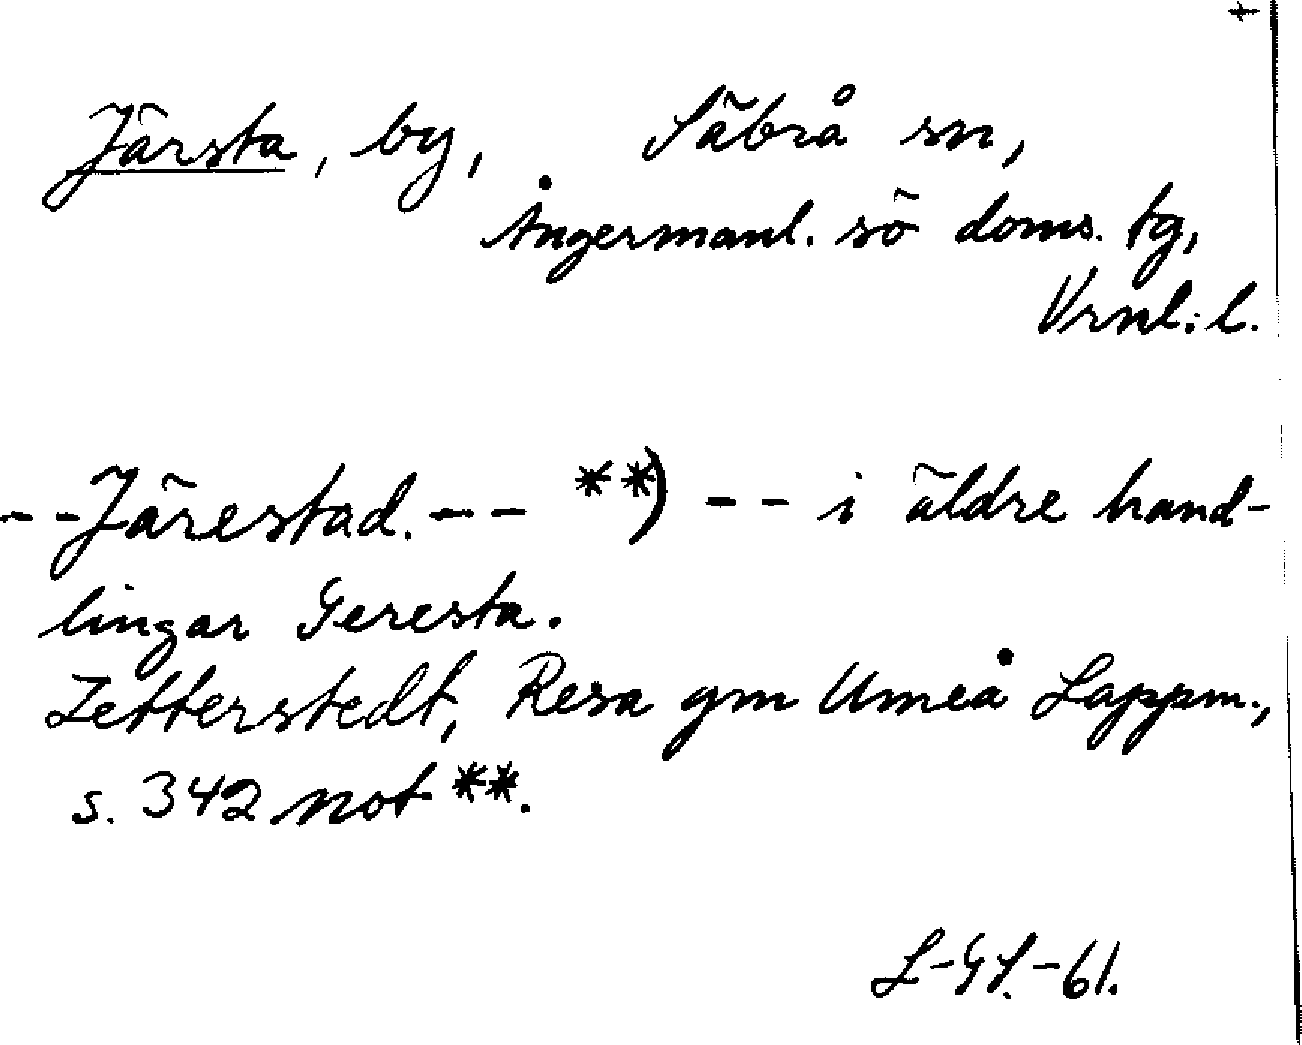 Järsta, by, Säbrå sn,
Ångermanl. sö doms. tg,
Vrnl. l.
-- Järestad. -- **) -- i äldre hand-
lingar Geresta.
Zetterstedt, Resa gm Umeå Lappm.,
s. 342 not **.
L-GS.-61.